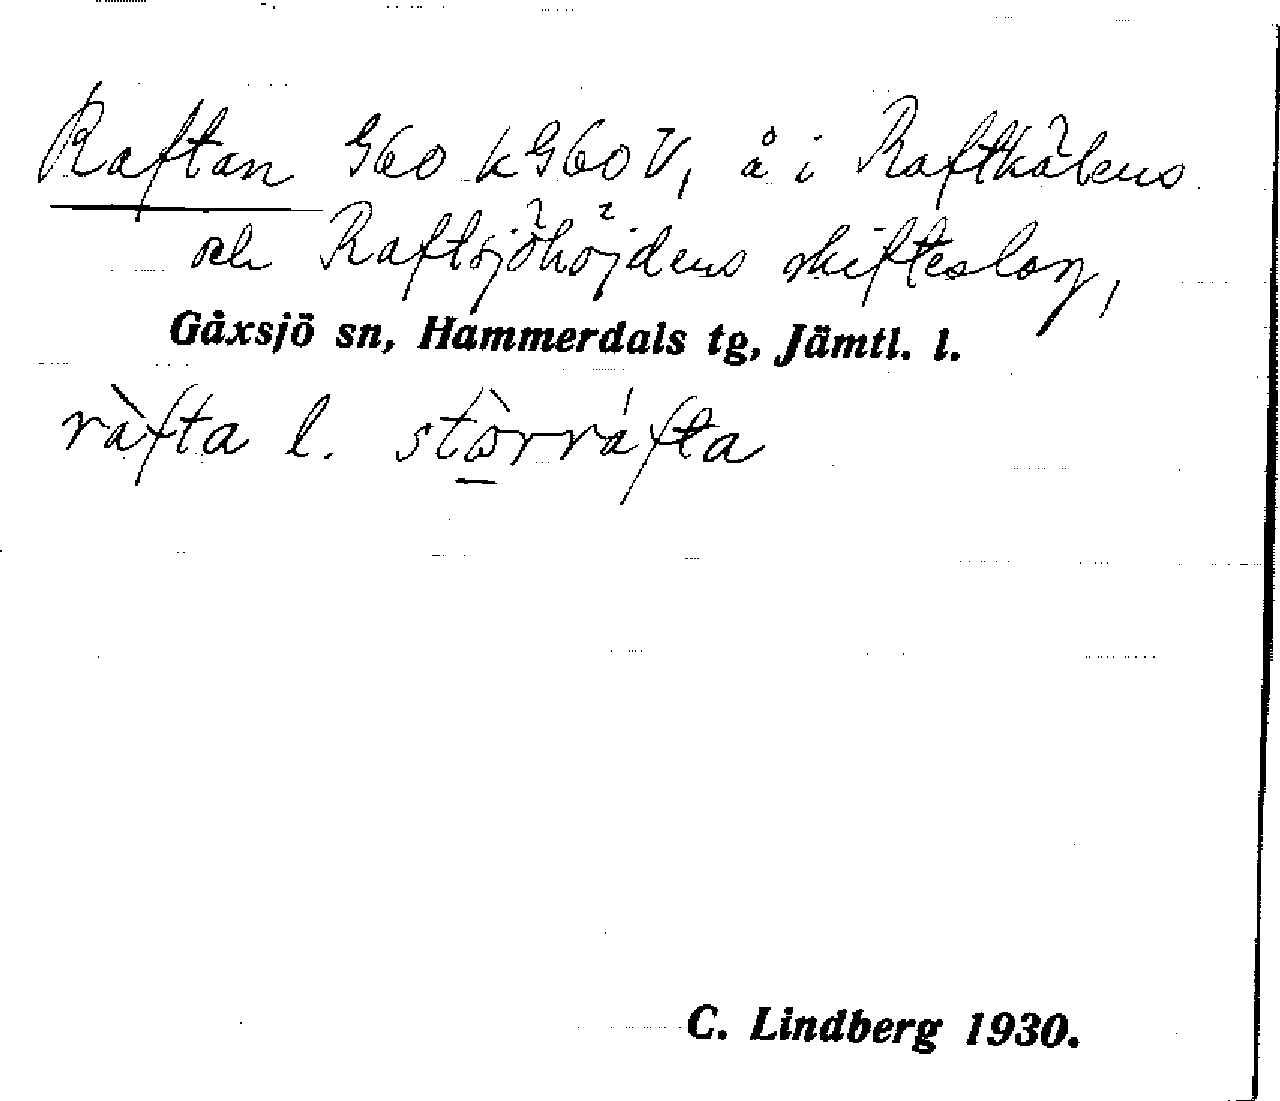 Raftan G60 k G60 V, å i Raftkälens
och Raftsjöhöjdens skifteslag,
Gåxsjö sn, Hammerdals tg, Jämtl. l.
ràfta l. stòrráfta
C. Lindberg 1930.